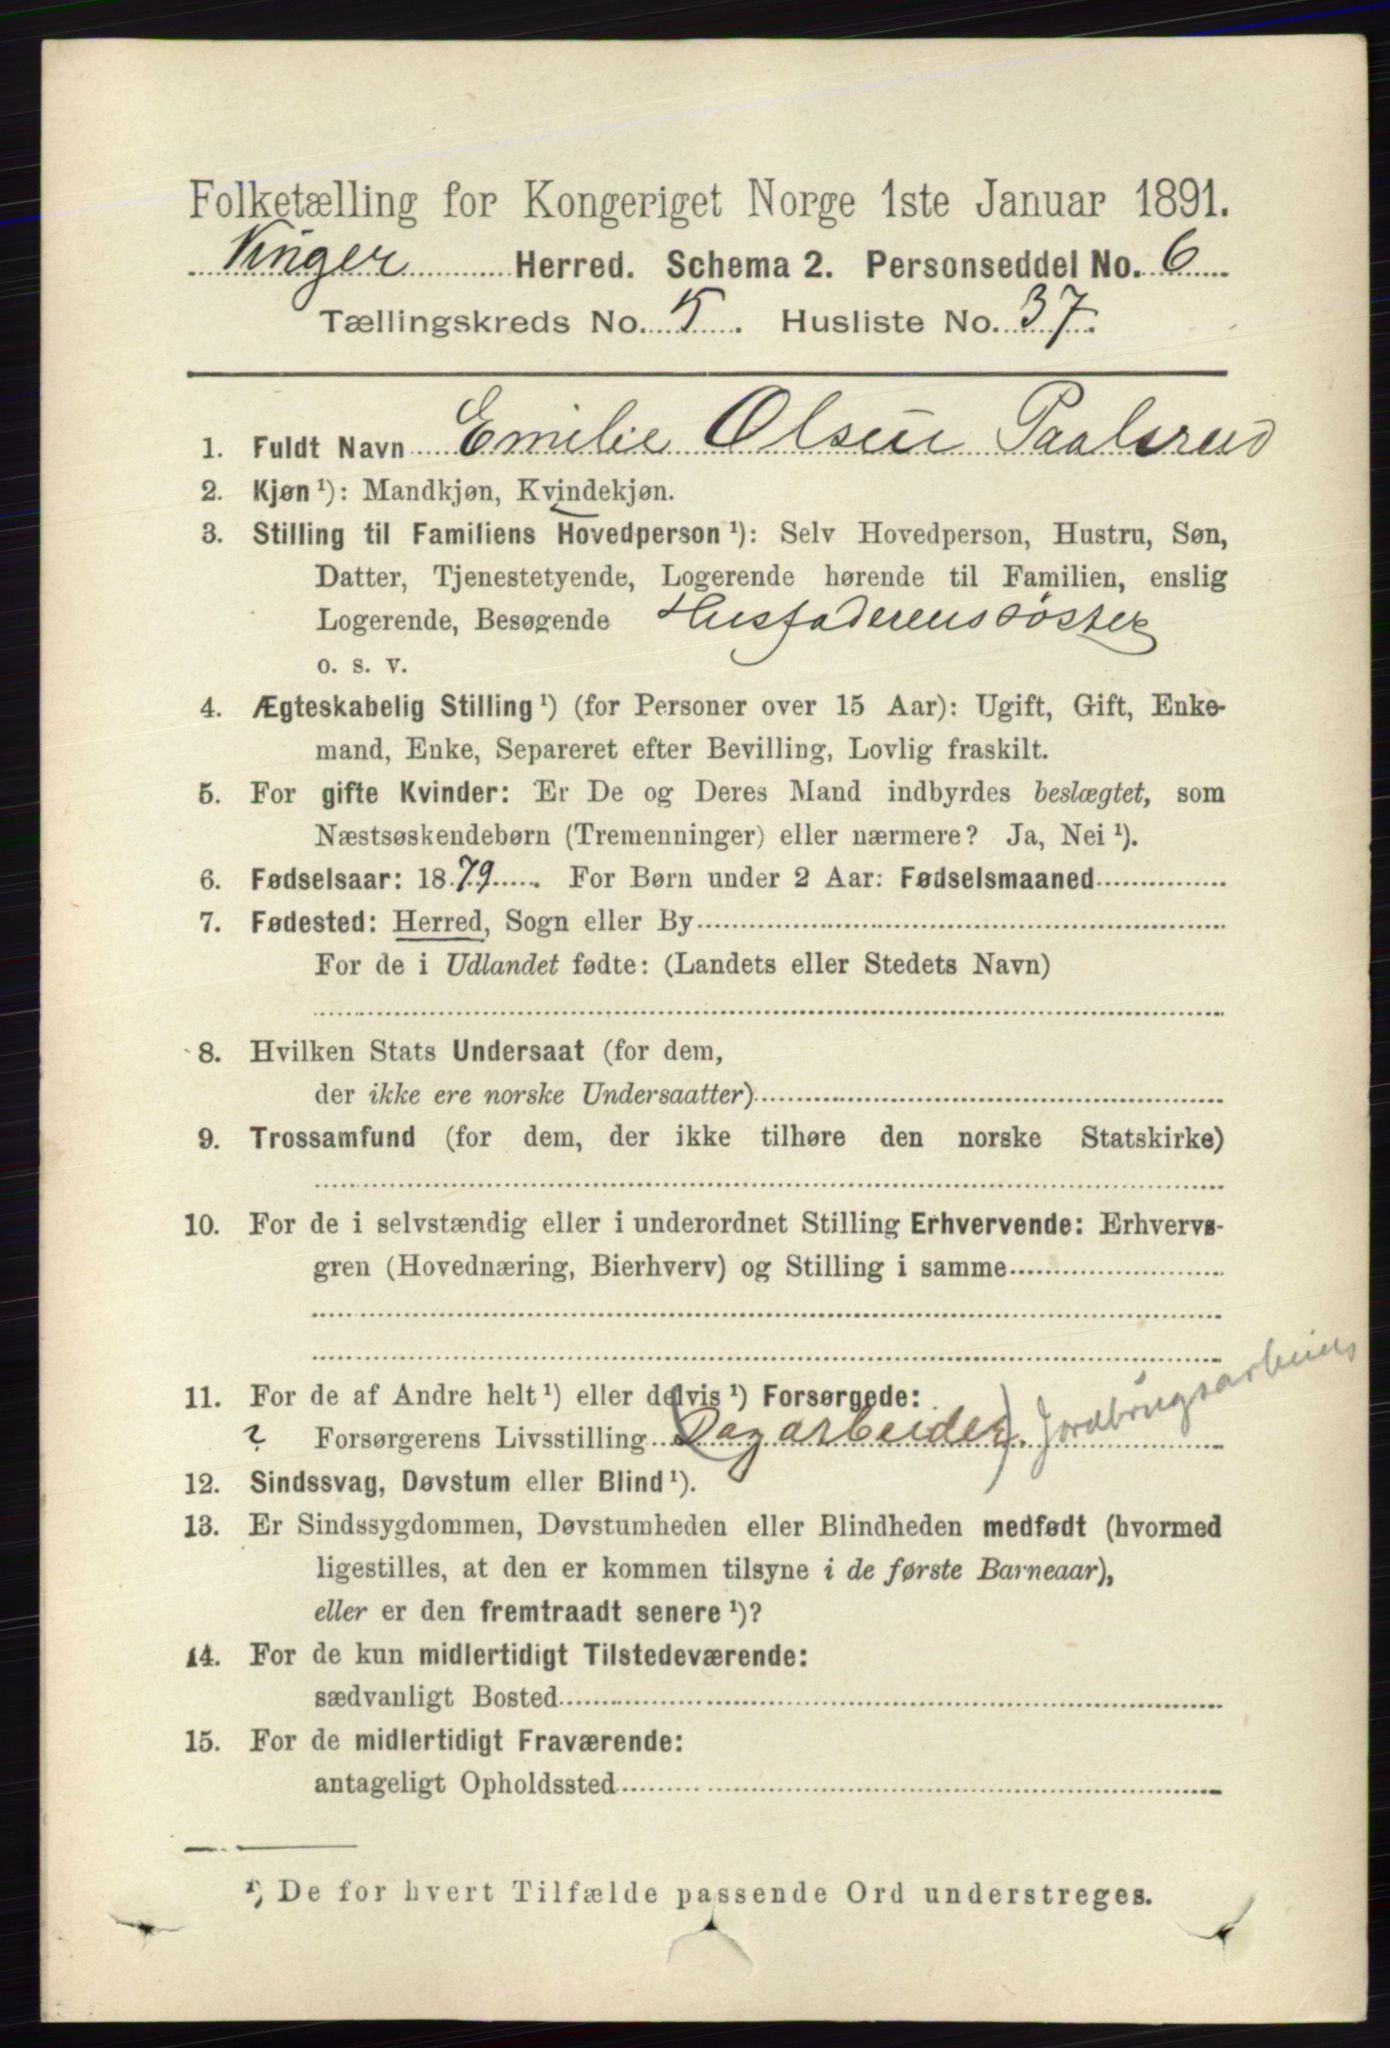 Folketælling for Kongeriget Norge 1ste Januar 1891.
Vinger Herred. Schema 2. Personseddel No. 6
Tællingskreds No. 5. Husliste No. 37.
1. Fuldt Navn Emilie Olsen Paalsrud
2. Kjøn ¹): Mandkjøn, Kvindekjøn.
3. Stilling til Familiens Hovedperson ¹): Selv Hovedperson, Hustru, Søn,
Datter, Tjenestetyende, Logerende hørende til Familien, enslig
Logerende, Besøgende Husfaderens søster
o. s. v.
4. Ægteskabelig Stilling ¹) (for Personer over 15 Aar): Ugift, Gift, Enke-
mand, Enke, Separeret efter Bevilling, Lovlig fraskilt.
5. For gifte Kvinder: Er De og Deres Mand indbyrdes beslægtet, som
Næstsøskendebørn (Tremenninger) eller nærmere? Ja, Nei ¹).
6. Fødselsaar: 1879. For Børn under 2 Aar: Fødselsmaaned
7. Fødested: Herred, Sogn eller By
For de i Udlandet fødte: (Landets eller Stedets Navn)
8. Hvilken Stats Undersaat (for dem,
der ikke ere norske Undersaatter)
9. Trossamfund (for dem, der ikke tilhøre den norske Statskirke)
10. For de i selvstændig eller i underordnet Stilling Erhvervende: Erhvervs-
gren (Hovednæring, Bierhverv) og Stilling i samme
11. For de af Andre helt ¹) eller delvis ¹) Forsørgede:
? Forsørgerens Livsstilling (Dagarbeider.) Jordbrugsarbeids
12. Sindssvag, Døvstum eller Blind ¹).
13. Er Sindssygdommen, Døvstumheden eller Blindheden medfødt (hvormed
ligestilles, at den er kommen tilsyne i de første Barneaar),
eller er den fremtraadt senere ¹)?
14. For de kun midlertidigt Tilstedeværende:
sædvanligt Bosted
15. For de midlertidigt Fraværende:
antageligt Opholdssted
¹) De for hvert Tilfælde passende Ord understreges.